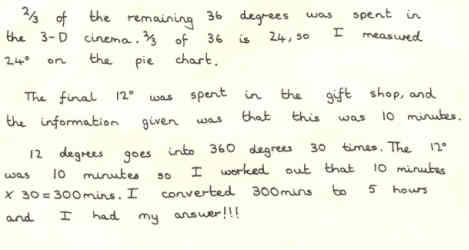 2/3 of the remaining 36 degrees was spent in
the 3-D cinema. 2/3 of 36 is 24, so I measured
24° on the pie chart.
The final 12° was spent in the gift shop, and
the information given was that this was 10 minutes.
12 degrees goes into 360 degrees 30 times. The 12°
was 10 minutes so I worked out that 10 minutes
x 30 = 300mins. I converted 300mins to 5 hours
and I had my answer!!!